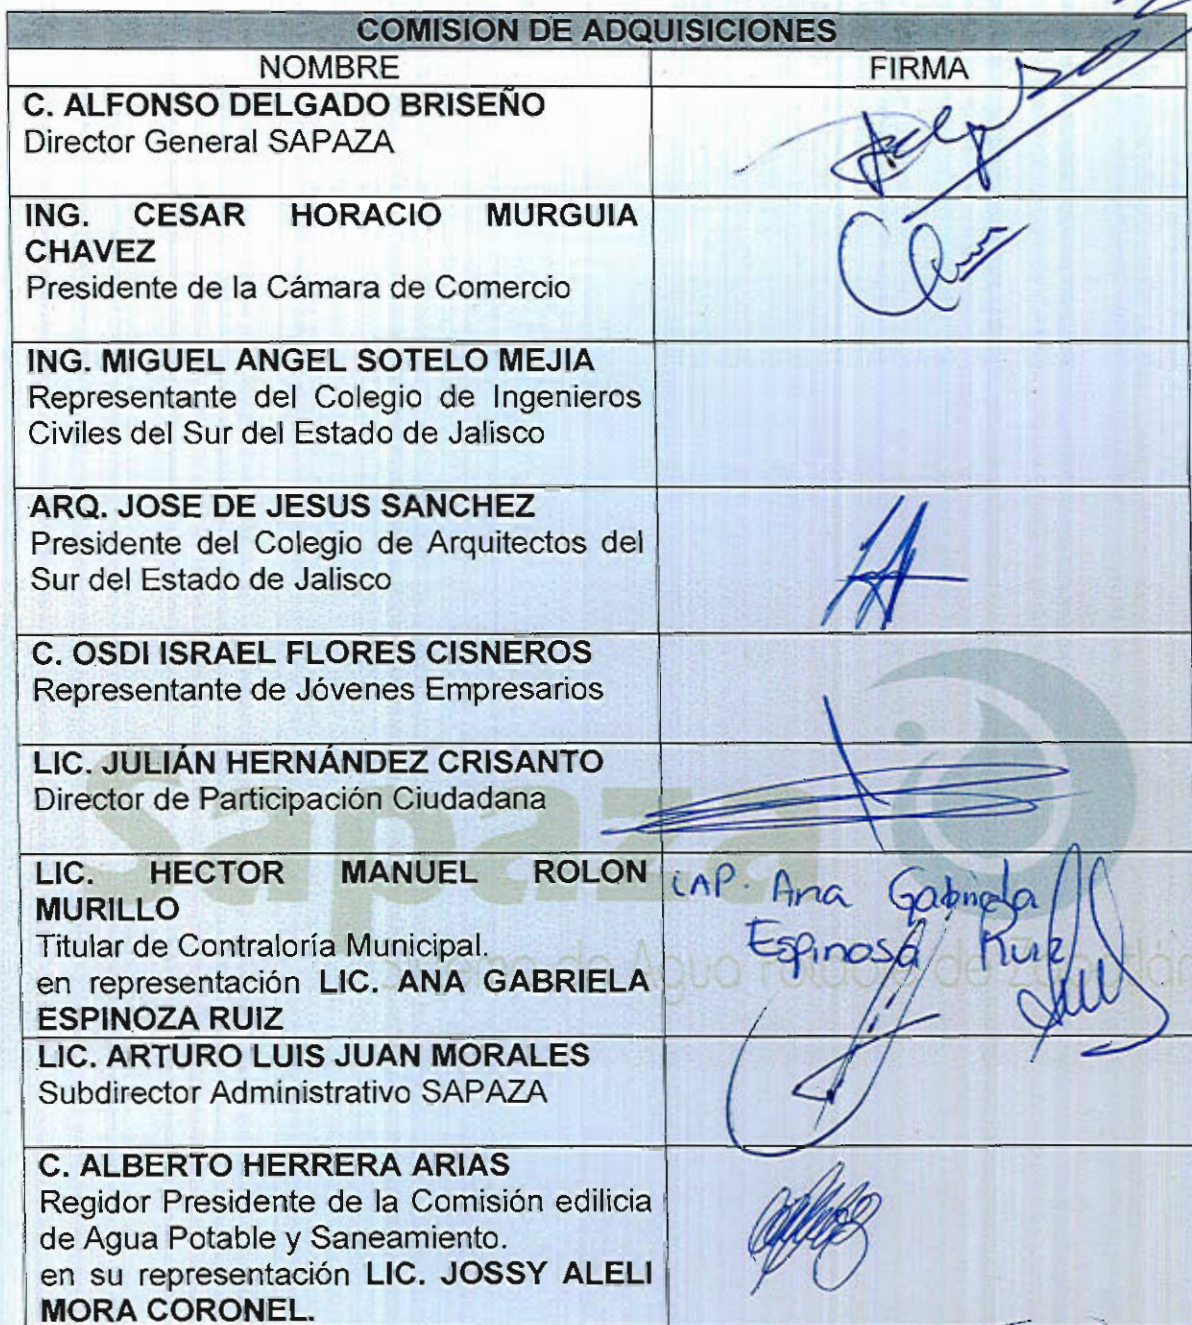 COMISION DE ADQUISICIONES
NOMBRE FIRMA
C. ALFONSO DELGADO BRISEÑO
Director General SAPAZA
ING. CESAR HORACIO MURGUIA
CHAVEZ
Presidente de la Cámara de Comercio
ING. MIGUEL ANGEL SOTELO MEJIA
Representante del Colegio de Ingenieros
Civiles del Sur del Estado de Jalisco
ARQ. JOSE DE JESUS SANCHEZ
Presidente del Colegio de Arquitectos del
Sur del Estado de Jalisco
C. OSDI ISRAEL FLORES CISNEROS
Representante de Jóvenes Empresarios
LIC. JULIÁN HERNÁNDEZ CRISANTO
Director de Participación Ciudadana
Sapaza
LIC. HECTOR MANUEL ROLON
MURILLO
Titular de Contraloría Municipal.
en representación LIC. ANA GABRIELA
ESPINOZA RUIZ
LAP. Ana Gabriela
Espinosa Ruiz
de Agua Potable de Zapotlán
LIC. ARTURO LUIS JUAN MORALES
Subdirector Administrativo SAPAZA
C. ALBERTO HERRERA ARIAS
Regidor Presidente de la Comisión edilicia
de Agua Potable y Saneamiento.
en su representación LIC. JOSSY ALELI
MORA CORONEL.